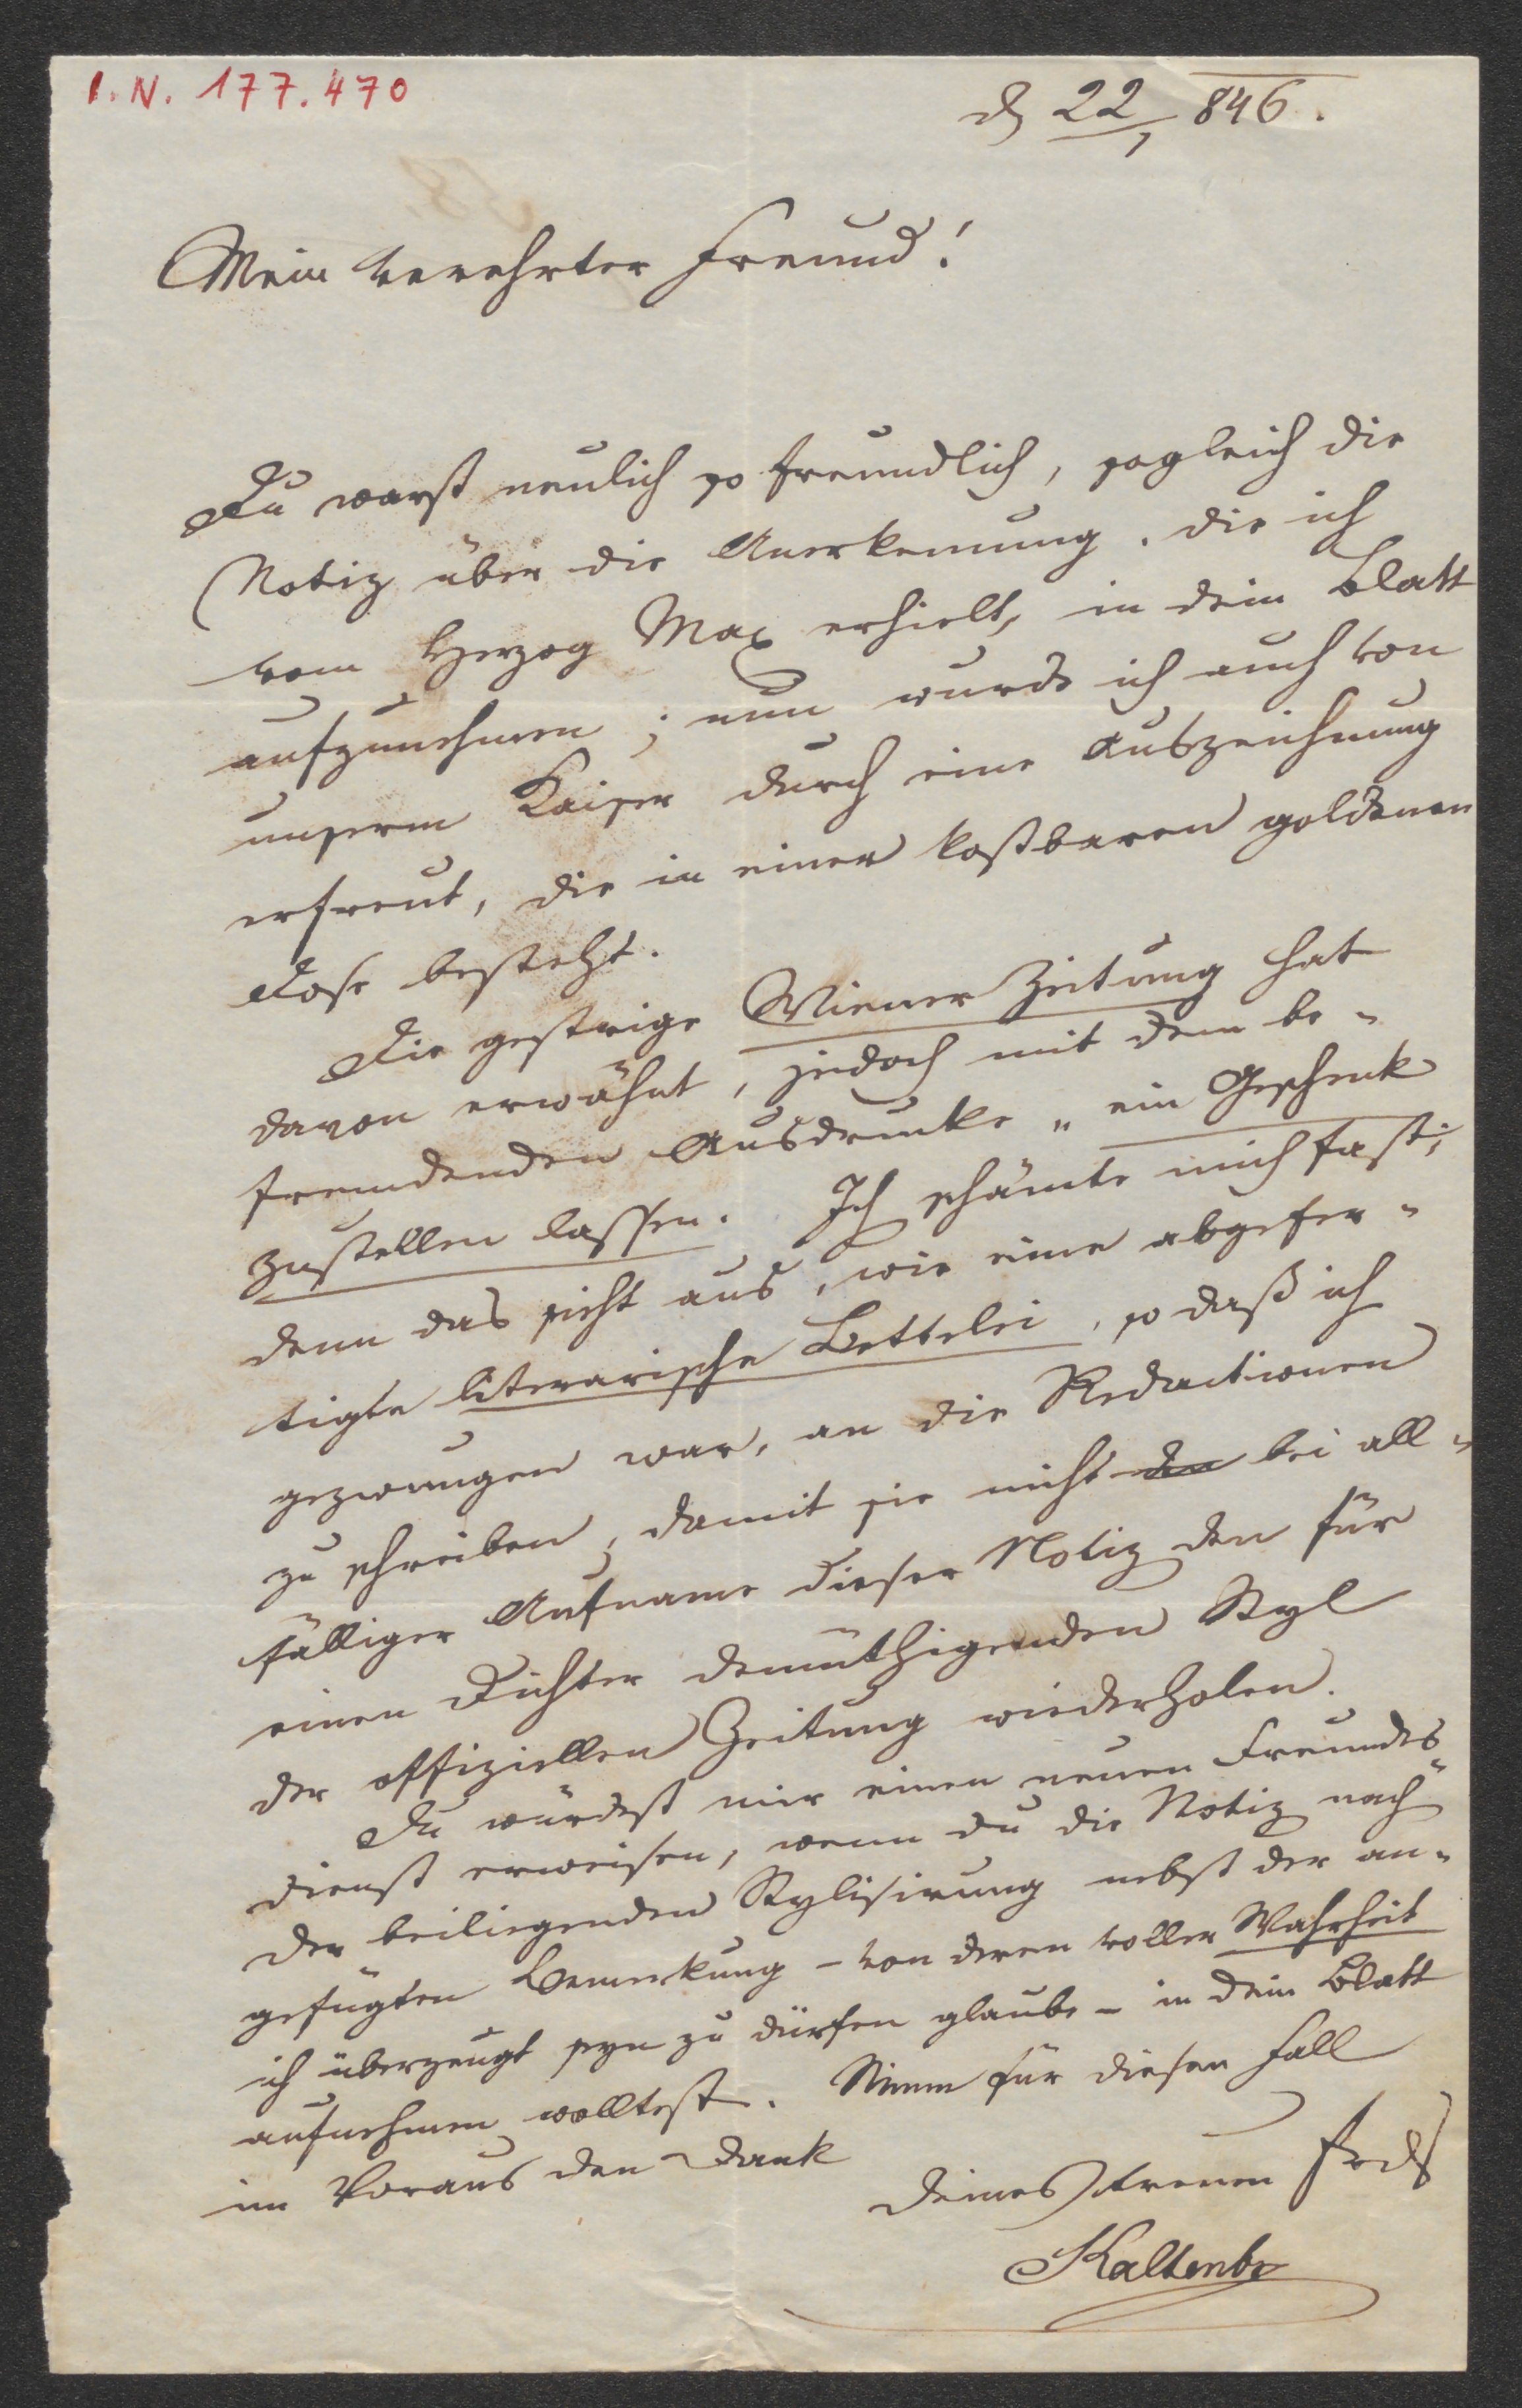 I. N. 177.470
d 22/1 846.
Mein verehrter Freund!
Du warst neulich so freundlich, sogleich die
Notiz über die Anerkennung, die ich
vom Herzog Max erhielt, in dein Blatt
aufzunehmen; nun wurde ich auch von
unserm Kaiser durch eine Auszeichnung
erfreut, die in einer kostbaren goldenen
Dose besteht.
Die gestrige Wiener Zeitung hat
davon erwähnt, jedoch mit dem be-
fremdenden Ausdrucke „ein Geschenk
zustellen lassen. Ich schämte mich fast;
denn das sieht aus, wie eine abgefer-
tigte literarische Bettelei, so daß ich
gezwungen war, an die Redactionen
zu schreiben, damit sie nicht den bei all-
fälliger Aufname dieser Notiz den für
einen Dichter demüthigenden Styl
der offiziellen Zeitung wiederholen.
Du würdest mir einen neuen Freundes-
dienst erweisen, wenn du die Notiz nach
der beiliegenden Stylisirung nebst der an-
gefügten Bemerkung – von deren voller Wahrheit
ich überzeugt seyn zu dürfen glaube – in dein Blatt
aufnehmen wolltest. Nimm für diesen Fall
im Voraus den Dank
deines treuen Frds
Kaltenbr